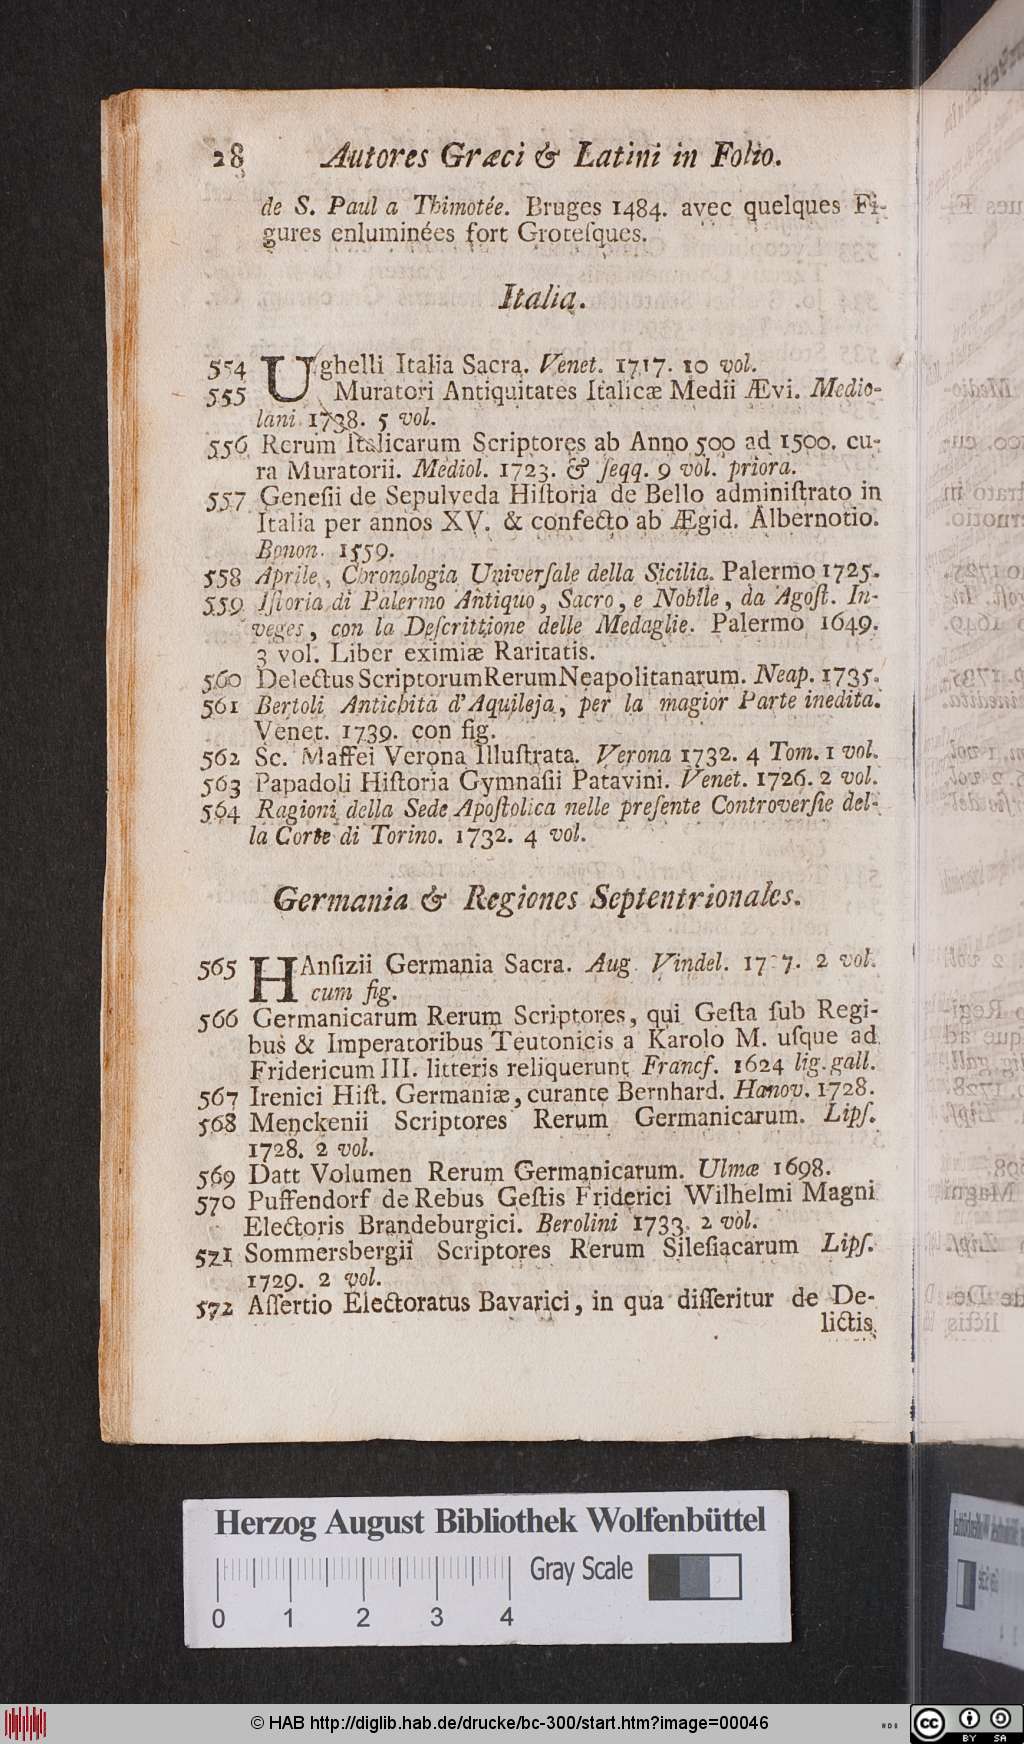 28 Autores Græci & Latini in Folio.
de S. Paul a Thimotée. Bruges 1484. avec quelques Fi-
gures enluminées fort Grotesques.
Italia.
554 Ughelli Italia Sacra. Venet. 1717. 10 vol.
555 Muratori Antiquitates Italicæ Medii Ævi. Medio-
lani 1738. 5 vol.
556 Rerum Italicarum Scriptores ab Anno 500 ad 1500. cu-
ra Muratorii. Mediol. 1723. & ſeqq. 9 vol. priora.
557 Geneſii de Sepulveda Hiſtoria de Bello adminiſtrato in
Italia per annos XV. & confecto ab Ægid. Albernotio.
Bonon. 1559.
558 Aprile, Chronologia Univerſale della Sicilia. Palermo 1725.
559 Iſtoria di Palermo Antiquo, Sacro, e Nobile, da Agoſt. In-
veges, con la Deſcrittione delle Medaglie. Palermo 1649.
3 vol. Liber eximiæ Raritatis.
560 Delectus Scriptorum Rerum Neapolitanarum. Neap. 1735.
561 Bertoli Antichita d'Aquileja, per la magior Parte inedita.
Venet. 1739. con fig.
562 Sc. Maffei Verona Illuſtrata. Verona 1732. 4 Tom. 1 vol.
563 Papadoli Hiſtoria Gymnaſii Patavini. Venet. 1726. 2 vol.
564 Ragioni della Sede Apoſtolica nelle preſente Controverſie del-
la Corte di Torino. 1732. 4 vol.
Germania & Regiones Septentrionales.
565 HAnſizii Germania Sacra. Aug. Vindel. 2 vol.
cum fig.
566 Germanicarum Rerum Scriptores, qui Geſta ſub Regi-
bus & Imperatoribus Teutonicis a Karolo M. uſque ad
Fridericum III. litteris reliquerunt Francf. 1624 lig. gall.
567 Irenici Hiſt. Germaniæ, curante Bernhard. Hanov. 1728.
568 Menckenii Scriptores Rerum Germanicarum. Lipſ.
1728. 2 vol.
569 Datt Volumen Rerum Germanicarum. Ulmæ 1698.
570 Puffendorf de Rebus Geſtis Friderici Wilhelmi Magni
Electoris Brandeburgici. Berolini 1733. 2 vol.
571 Sommersbergii Scriptores Rerum Sileſiacarum Lipſ.
1729. 2 vol.
572 Aſſertio Electoratus Bavarici, in qua diſſeritur de De-
lictis
Herzog August Bibliothek Wolfenbüttel
Gray Scale
0 1 2 3 4
© HAB http://diglib.hab.de/drucke/bc-300/start.htm?image=00046
cc BY SA